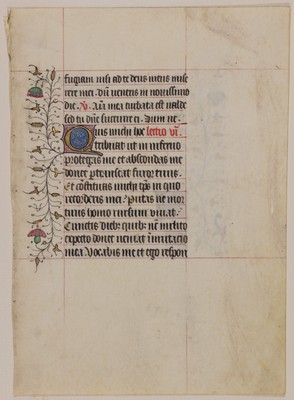 fugiam nisi ad te deus meus mise
rere mei. Dum veneris in novissimo
die. V. Aīa mea turbata est valde
sed tu dñe succurre ei. Dum ve.
Quis michi hoc lectio vii.
tribuat ut in inferno
protegas me et abscondas me
donec ptranseat furor tuus.
Et constituas michi tps in quo
recorderis mei: Putas ne mor
tuus homo rursum vivat:
Cunctis dieb⁹ quib⁹ nūc milito
expecto donec veniat īmutacio
mea Vocabis me et ego respon